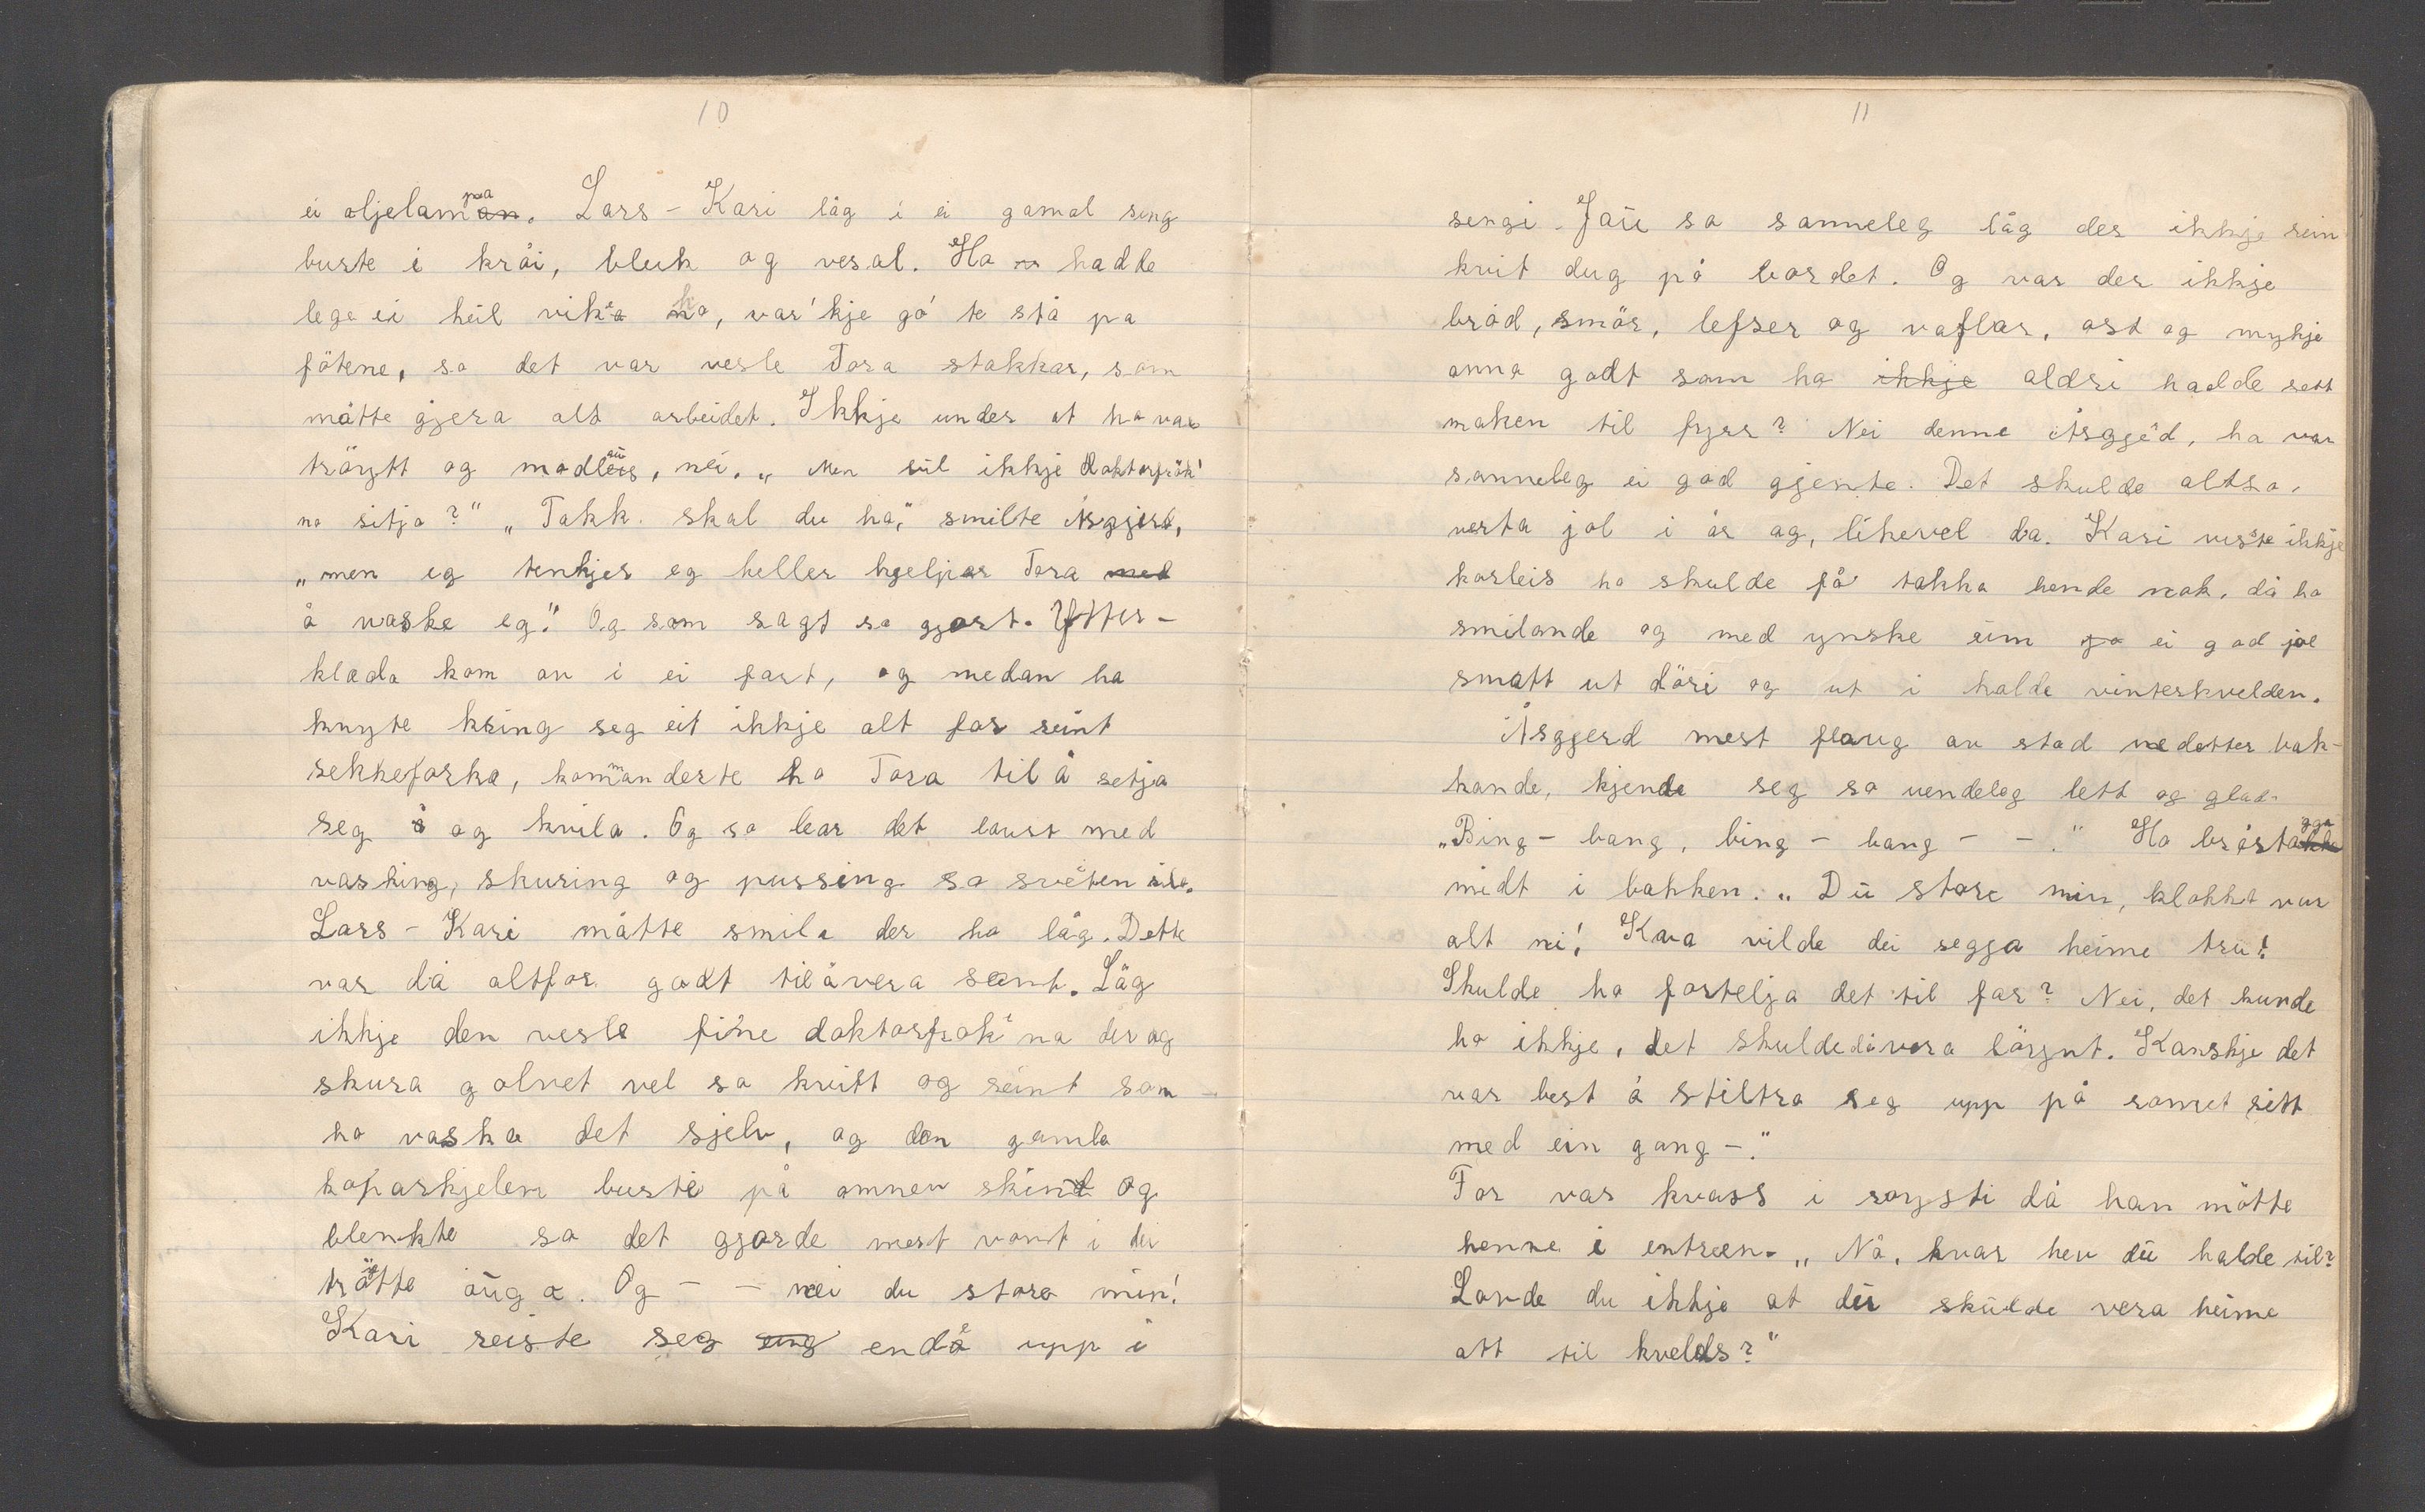 10
ei oljelampa. Lars-Kari låg i ei gamal seng
burte i kråi, bleik og vesal. Ha hadde
lege ei heil vike ho, var'kje go' te stå pa
fötene, so det var vesle Tora stakkar, som
måtte gjera alt arbeidet. Ikkje under at ho var
tröytt og modlaus, nei. „Men vil ikkje doktorfrök'
na sitja?" „Takk skal du ha," smilte Åsgjerd,
„men eg tenkjer eg heller hjelper Tora
å vaske eg." Og som sagt so gjort. Ytter-
klæda kom av i ei fart, og medan ho
knyte kring seg eit ikkje alt for reint
sekkeforkle, kommanderte ho Tora til å setja
seg og kvila. Og so bar det laust med
vasking, skuring og pussing so sveten
Lars-Kari måtte smile der ho låg. Dette
var då altfor godt til å vera sant. Låg
ikkje den vesle fine doktorfrök'na der og
skura golvet vel so kvitt og reint som
ho vaska det sjølv, og den gamle
koparkjelen burte på omnen skin og
blenkte so det gjorde mest vondt i dei
tröytte auga. Og - - nei du store min!
Kari reiste seg endå upp i
11
sengi. Jau so sanneleg låg der ikkje rein
kvit dug på bordet. Og var der ikkje
bröd, smör, lefser og vaflar, ost og mykje
anna godt som ho ikkje aldri hadde sett
maken til fyrr? Nei denne Åsgjerd, ho var
sanneleg ei god gjente. Det skulde altso
verta jol i år og, likevel da. Kari visste ikkje
korleis ho skulde få takka hende nok, då ho
smilande og med ynske um ei god jol
smatt ut döri og ut i kalde vinterkvelden.
Åsgjerd mest flaug av stad nedetter bak-
kande, kjende seg so uendeleg lett og glad.
„Bing-bang, bing-bang - -." Ho bråstogga
midt i bakken. „Du store min, klokka var
alt ni! Kva vilde dei segja heime tru!
Skulde ho fortelja det til far? Nei, det kunde
ho ikkje, det skulde då vera löynt. Kanskje det
var best å stiltra seg upp på romet sitt
med ein gang -."
Far var kvass i röysti då han mötte
henne i entreen. „Nå, kvar hev du halde til?
Lovde du ikkje at du skulde vera heime
att til kvelds?"